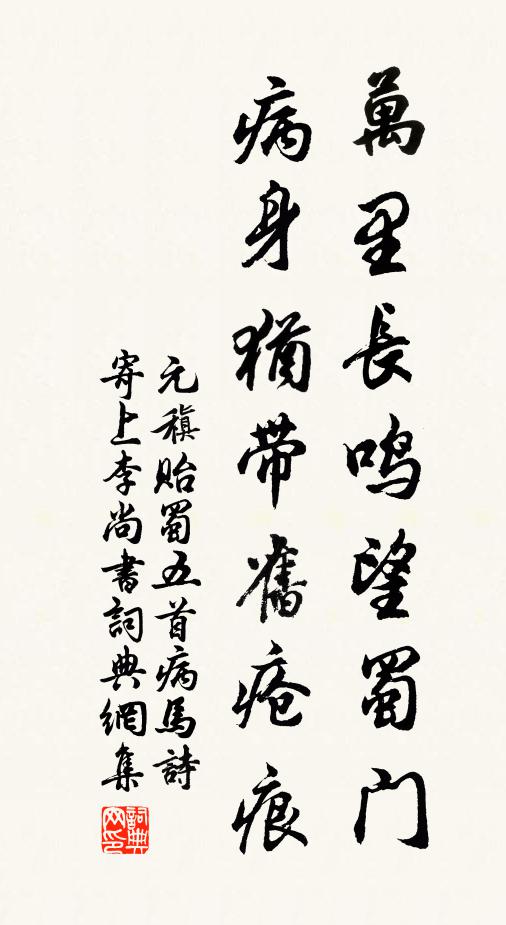 萬里長鳴望蜀門
病身猶带舊瘡痕
元稹貽蜀五首病馬詩
寄上李尚書詞典網集
詞典
网印